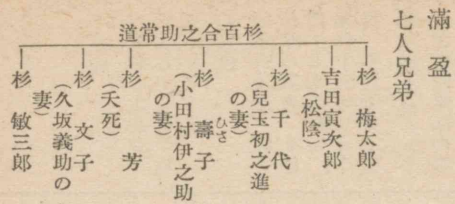 滿盈
七人兄弟
杉百合之助常道
杉梅太郎
吉田寅次郎
(松陰)
杉千代
(兒玉初之進
の妻)
杉壽子
ひさ
(小田村伊之助
の妻)
杉芳
(夭死)
杉文子
(久坂義助の
妻)
杉敏三郎